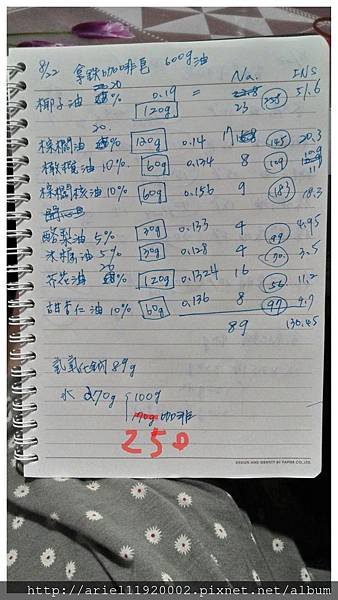 8/22 拿鐵咖啡皂 600g油
Na. INS
椰子油 20% 120g 0.19 = 23 258 51.6
棕櫚油 20% 120g 0.14 17 145 20.3
橄欖油 10% 60g 0.134 8 109 10.9
棕櫚核油 10% 60g 0.156 9 183 18.3
酪梨油 5% 30g 0.133 4 99 4.95
米糠油 5% 30g 0.128 4 70 3.5
芥花油 20% 120g 0.1324 16 56 11.2
甜杏仁油 10% 60g 0.136 8 97 9.7
89 130.45
氫氧化鈉 89g
水 270g 100g
170g咖啡
250
DESIGN AND IDENTITY BY PAPER CO.,LTD.
http://ariel11920002.pixnet.net/album